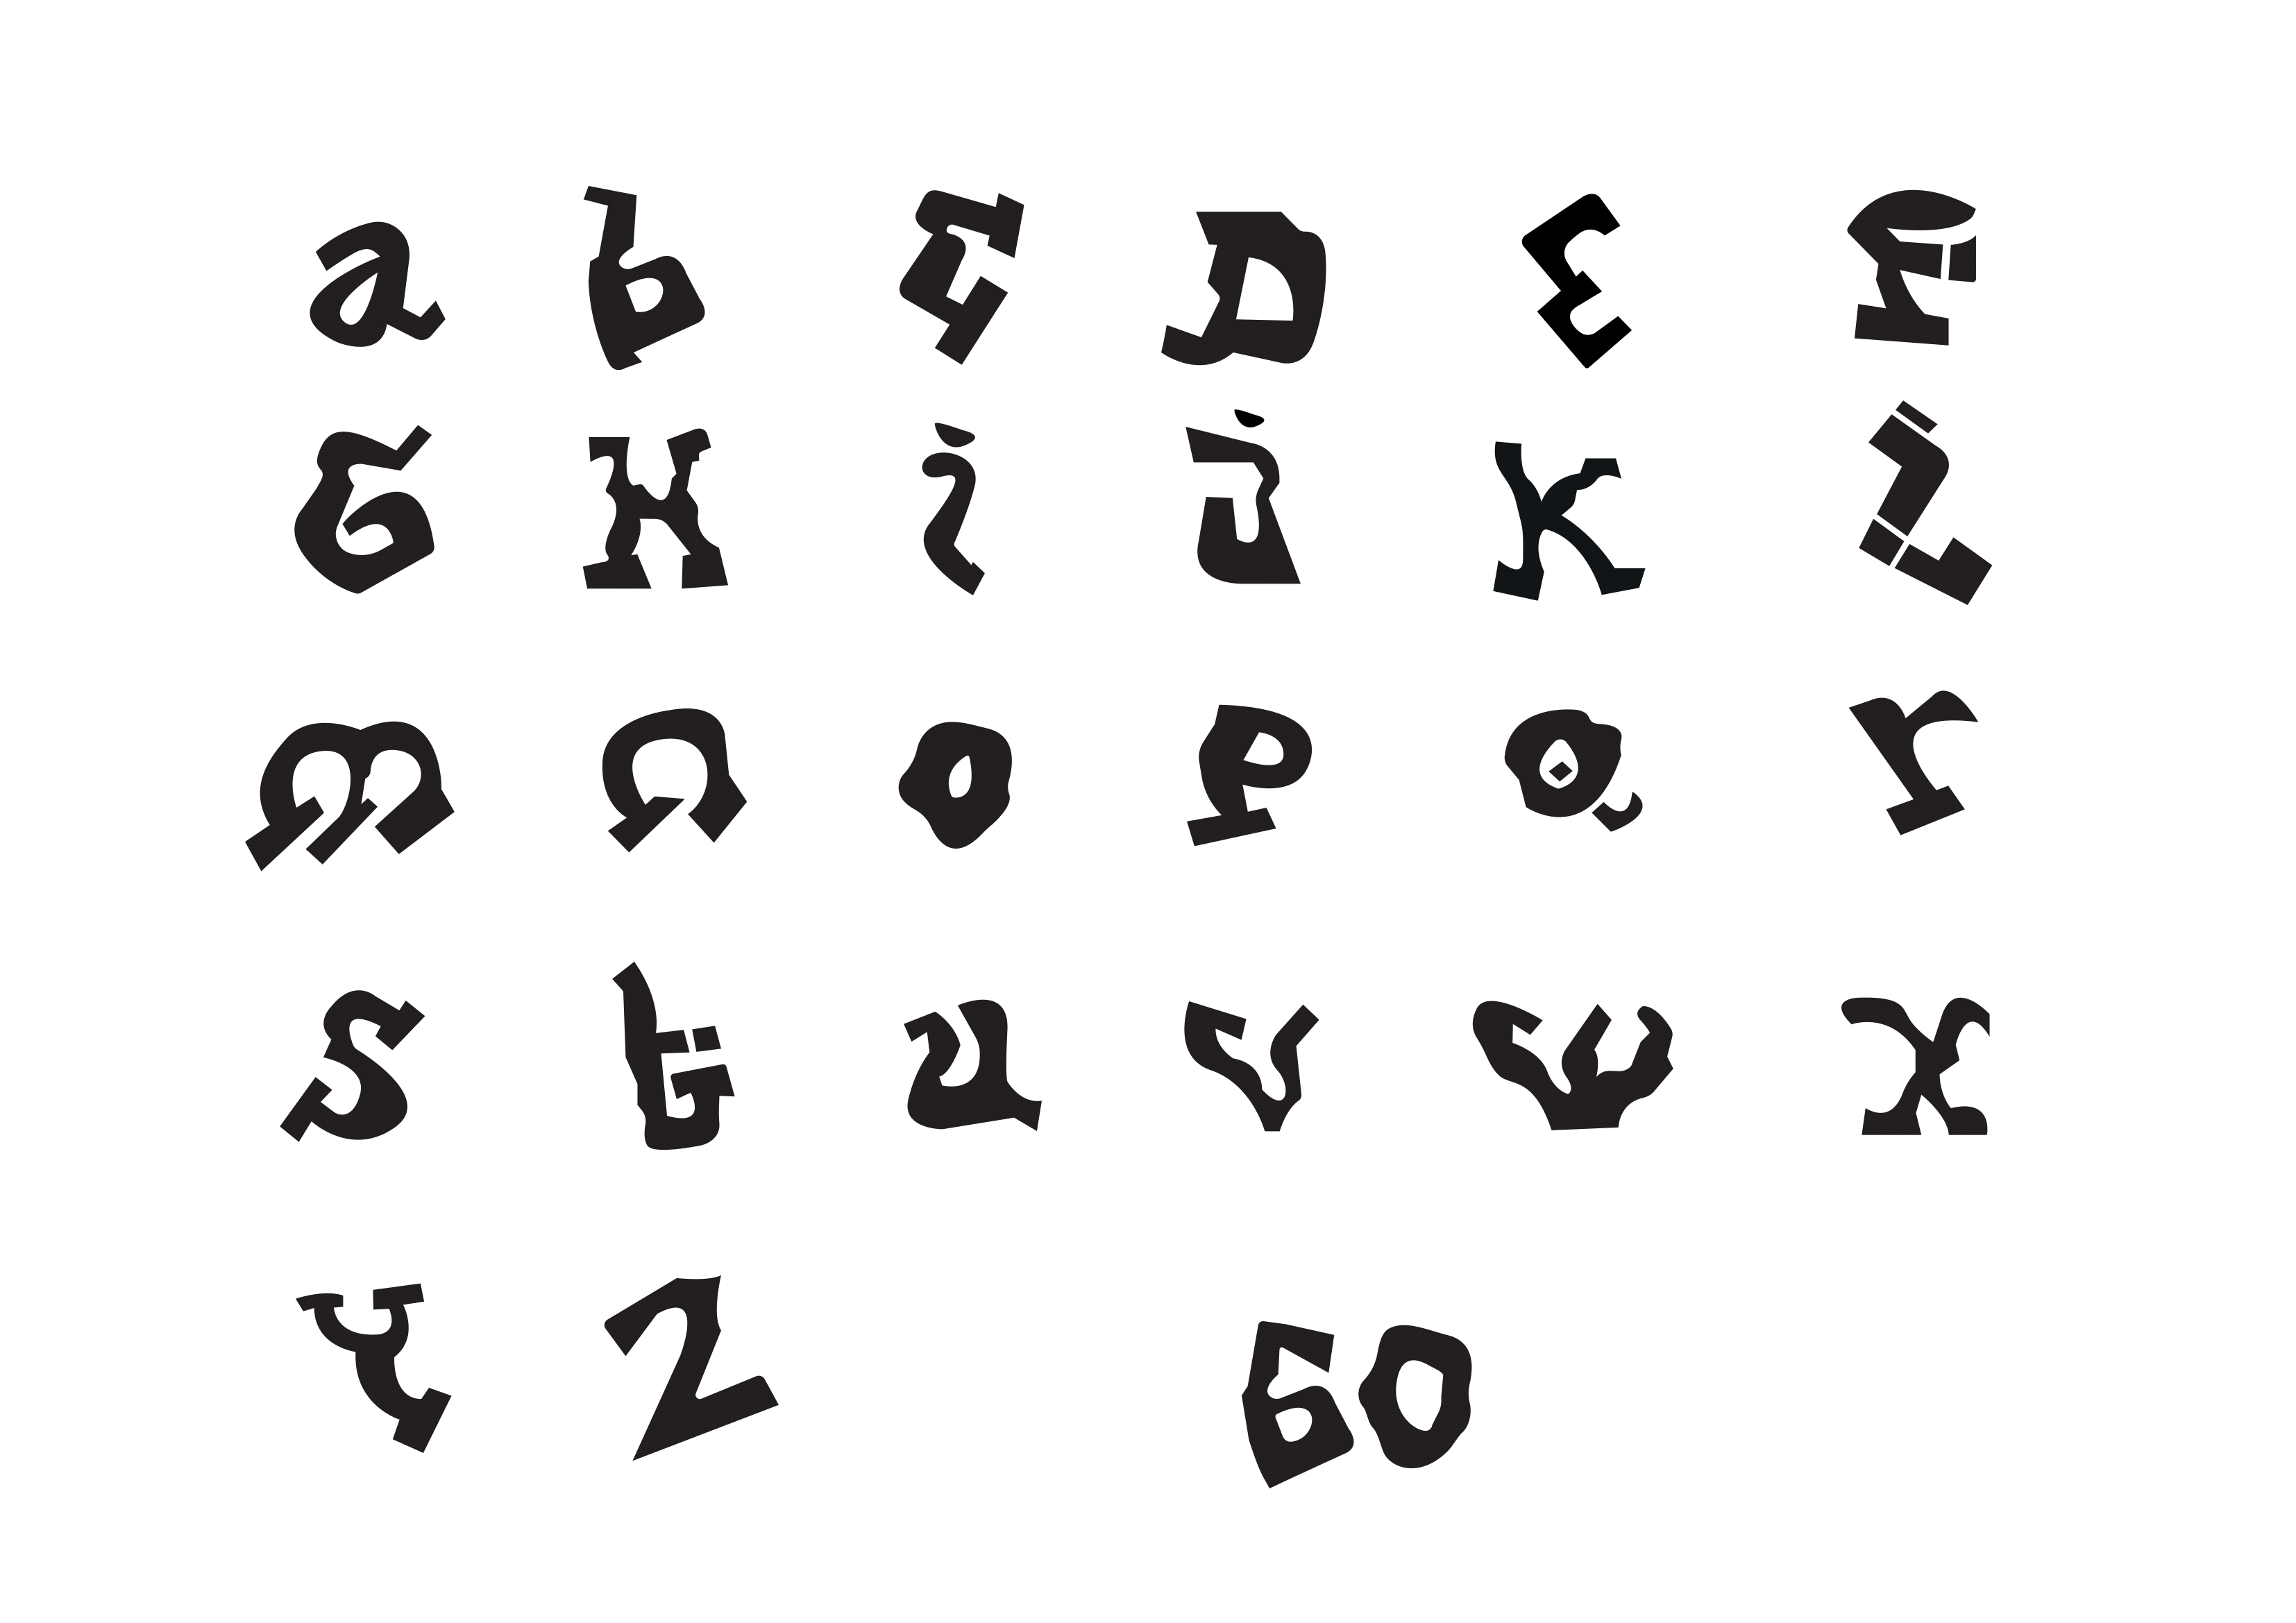 a b c D E f
G H i j K L
m n o P Q r
S t u v w x
Y Z 60